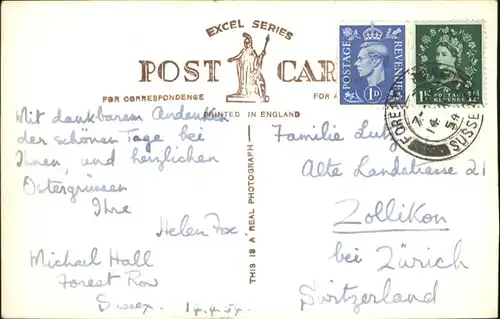 EXCEL SERIES
POST CAR
FOR CORRESPONDENCE
FOR A
PRINTED IN ENGLAND
POSTAGE
REVENUE
1D
POSTAGE
REVENUE
FOREST
SUSSE
14
54
THIS IS A REAL PHOTOGRAPH
Mit dankbarem Andenken
der schönen Tage bei
Ihnen, und herzlichen
Ostergrüssen
Ihre
Helen Fox
Michael Hall
Forest Row
Sussex. 14.4.54.
Familie Lutz
Alte Landstrasse 21
Zollikon
bei Zürich
Switzerland